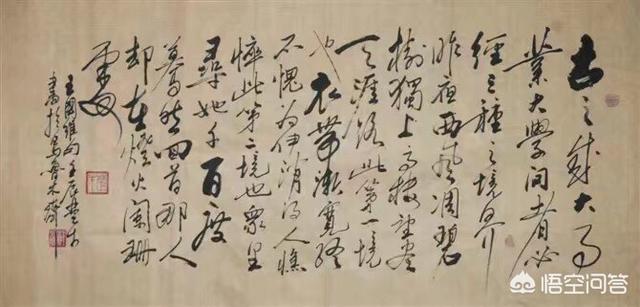 古之成大事
業大学问者必
经三种之境界
昨夜西风凋碧
樹獨上高楼望尽
天涯路此第一境
也衣带渐宽终
不愧为伊消得人憔
悴此第二境也众里
尋她千百度
蓦然回首那人
却在燈火阑珊
處
王国维句壬辰
書於烏鲁木齊
悟空问答